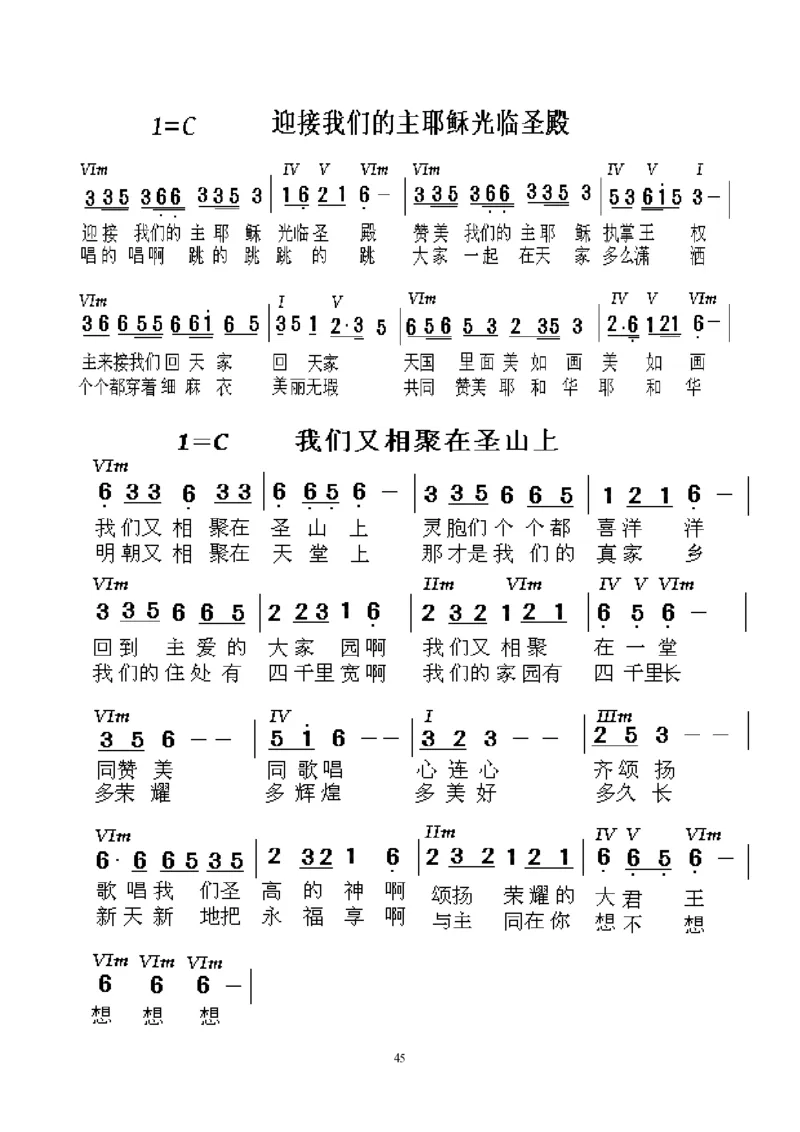 1=C 迎接我们的主耶稣光临圣殿
VIm IV V VIm VIm IV V I
3 3 5 3 6 6 3 3 5 3 | 1 6 2 1 6 − | 3 3 5 3 6 6 3 3 5 3 | 5 3 6 1 5 3 − |
迎接 我们的 主耶 稣 光临圣 殿 赞美 我们的 主耶 稣 执掌王 权
唱的 唱啊 跳的 跳跳 的 跳 大家 一起 在天 家 多么潇 洒
VIm I V VIm IV V VIm
3 6 6 5 5 6 6 1 6 5 | 3 5 1 2·3 5 | 6 5 6 5 3 2 3 5 3 | 2·6 1 2 1 6 − |
主来接我们回 天 家 回 天家 天国 里面 美 如 画 美 如 画
个个都穿着细 麻 衣 美丽无瑕 共同 赞美 耶 和 华 耶 和 华
1=C 我们又相聚在圣山上
VIm
6 3 3 6 3 3 | 6 6 5 6 − | 3 3 5 6 6 5 | 1 2 1 6 − |
我们又相 聚在 圣 山 上 灵胞们个 个都 喜洋 洋
明朝又相 聚在 天 堂 上 那才是我 们的 真家 乡
VIm IIm VIm IV V VIm
3 3 5 6 6 5 | 2 2 3 1 6 | 2 3 2 1 2 1 | 6 5 6 − |
回到 主 爱 的 大家 园啊 我们又 相聚 在 一 堂
我们的住处有 四千里宽啊 我们的家园有 四 千里长
VIm IV I IIIm
3 5 6 − − | 5 1 6 − − | 3 2 3 − − | 2 5 3 − − |
同赞 美 同 歌唱 心 连心 齐颂 扬
多荣 耀 多 辉煌 多 美好 多久 长
VIm IIm IV V VIm
6· 6 6 5 3 5 | 2 3 2 1 6 | 2 3 2 1 2 1 | 6 6 5 6 − |
歌 唱我 们圣 高 的 神 啊 颂扬 荣耀的 大 君 王
新天新 地把 永 福 享 啊 与主 同在你 想不 想
VIm VIm VIm
6 6 6 − |
想 想 想
45